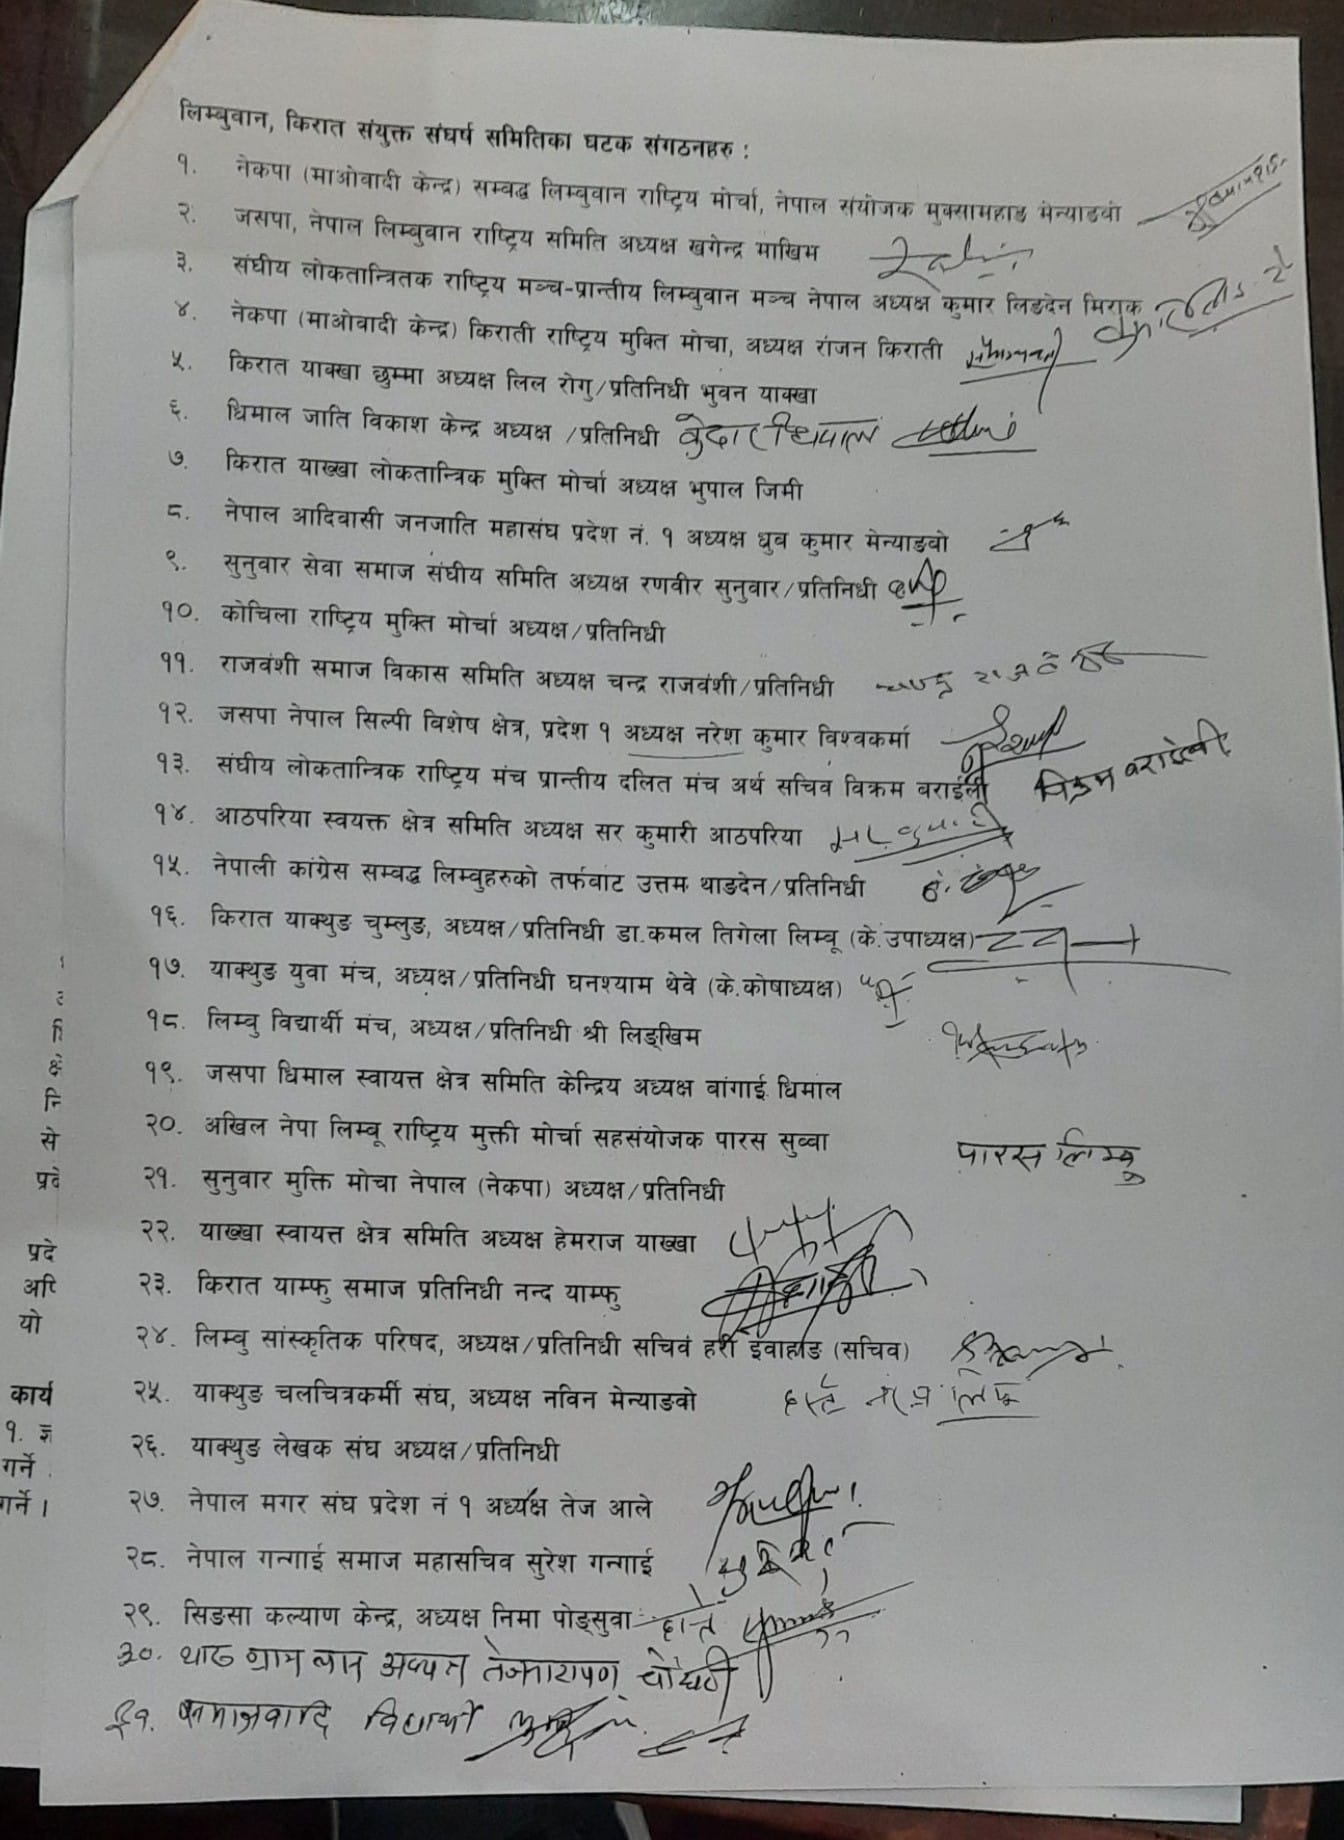 लिम्बुवान, किरात संयुक्त संघर्ष समितिका घटक संगठनहरु :
१. नेकपा (माओवादी केन्द्र) सम्वद्ध लिम्बुवान राष्ट्रिय मोर्चा, नेपाल संयोजक मुक्सामहाङ मेन्याङवो
२. जसपा, नेपाल लिम्बुवान राष्ट्रिय समिति अध्यक्ष खगेन्द्र माखिम
३. संघीय लोकतान्त्रितक राष्ट्रिय मञ्च-प्रान्तीय लिम्बुवान मञ्च नेपाल अध्यक्ष कुमार लिङदेन मिराक
४. नेकपा (माओवादी केन्द्र) किराती राष्ट्रिय मुक्ति मोचा, अध्यक्ष रांजन किराती
५. किरात याक्खा छुम्मा अध्यक्ष लिल रोगु/प्रतिनिधी भुवन याक्खा
६. धिमाल जाति विकाश केन्द्र अध्यक्ष /प्रतिनिधी केदार धिमाल
७. किरात याख्खा लोकतान्त्रिक मुक्ति मोर्चा अध्यक्ष भुपाल जिमी
८. नेपाल आदिवासी जनजाति महासंघ प्रदेश नं. १ अध्यक्ष ध्रुव कुमार मेन्याङवो
९. सुनुवार सेवा समाज संघीय समिति अध्यक्ष रणवीर सुनुवार/प्रतिनिधी
१०. कोचिला राष्ट्रिय मुक्ति मोर्चा अध्यक्ष/प्रतिनिधी
११. राजवंशी समाज विकास समिति अध्यक्ष चन्द्र राजवंशी/प्रतिनिधी
१२. जसपा नेपाल सिल्पी विशेष क्षेत्र, प्रदेश १ अध्यक्ष नरेश कुमार विश्वकर्मा
१३. संघीय लोकतान्त्रिक राष्ट्रिय मंच प्रान्तीय दलित मंच अर्थ सचिव विक्रम बराईली विक्रम बराईली
१४. आठपरिया स्वयक्त क्षेत्र समिति अध्यक्ष सर कुमारी आठपरिया
१५. नेपाली कांग्रेस सम्वद्ध लिम्बुहरुको तर्फवाट उत्तम थाङदेन/प्रतिनिधी
१६. किरात याक्थुङ चुम्लुङ, अध्यक्ष/प्रतिनिधी डा.कमल तिगेला लिम्बू (के.उपाध्यक्ष)
१७. याक्थुङ युवा मंच, अध्यक्ष/प्रतिनिधी घनश्याम थेवे (के.कोषाध्यक्ष)
१८. लिम्बु विद्यार्थी मंच, अध्यक्ष/प्रतिनिधी श्री लिङ्खिम
१९. जसपा धिमाल स्वायत्त क्षेत्र समिति केन्द्रिय अध्यक्ष बांगाई धिमाल
२०. अखिल नेपा लिम्बू राष्ट्रिय मुक्ती मोर्चा सहसंयोजक पारस सुव्वा पारस लिम्बु
२१. सुनुवार मुक्ति मोचा नेपाल (नेकपा) अध्यक्ष/प्रतिनिधी
२२. याख्खा स्वायत्त क्षेत्र समिति अध्यक्ष हेमराज याख्खा
२३. किरात याम्फु समाज प्रतिनिधी नन्द याम्फु
२४. लिम्बु सांस्कृतिक परिषद, अध्यक्ष/प्रतिनिधी सचिवं हरी इवाहाङ (सचिव)
२५. याक्थुङ चलचित्रकर्मी संघ, अध्यक्ष नविन मेन्याङवो
२६. याक्थुङ लेखक संघ अध्यक्ष/प्रतिनिधी
२७. नेपाल मगर संघ प्रदेश नं १ अध्यक्ष तेज आले
२८. नेपाल गन्गाई समाज महासचिव सुरेश गन्गाई
२९. सिङसा कल्याण केन्द्र, अध्यक्ष निमा पोङ्सुवा
३०. अध्यक्ष चौधरी
३१. समाजवादि विद्यार्थी
से
प्रदे
यो
कार्य
गर्ने
गर्ने ।